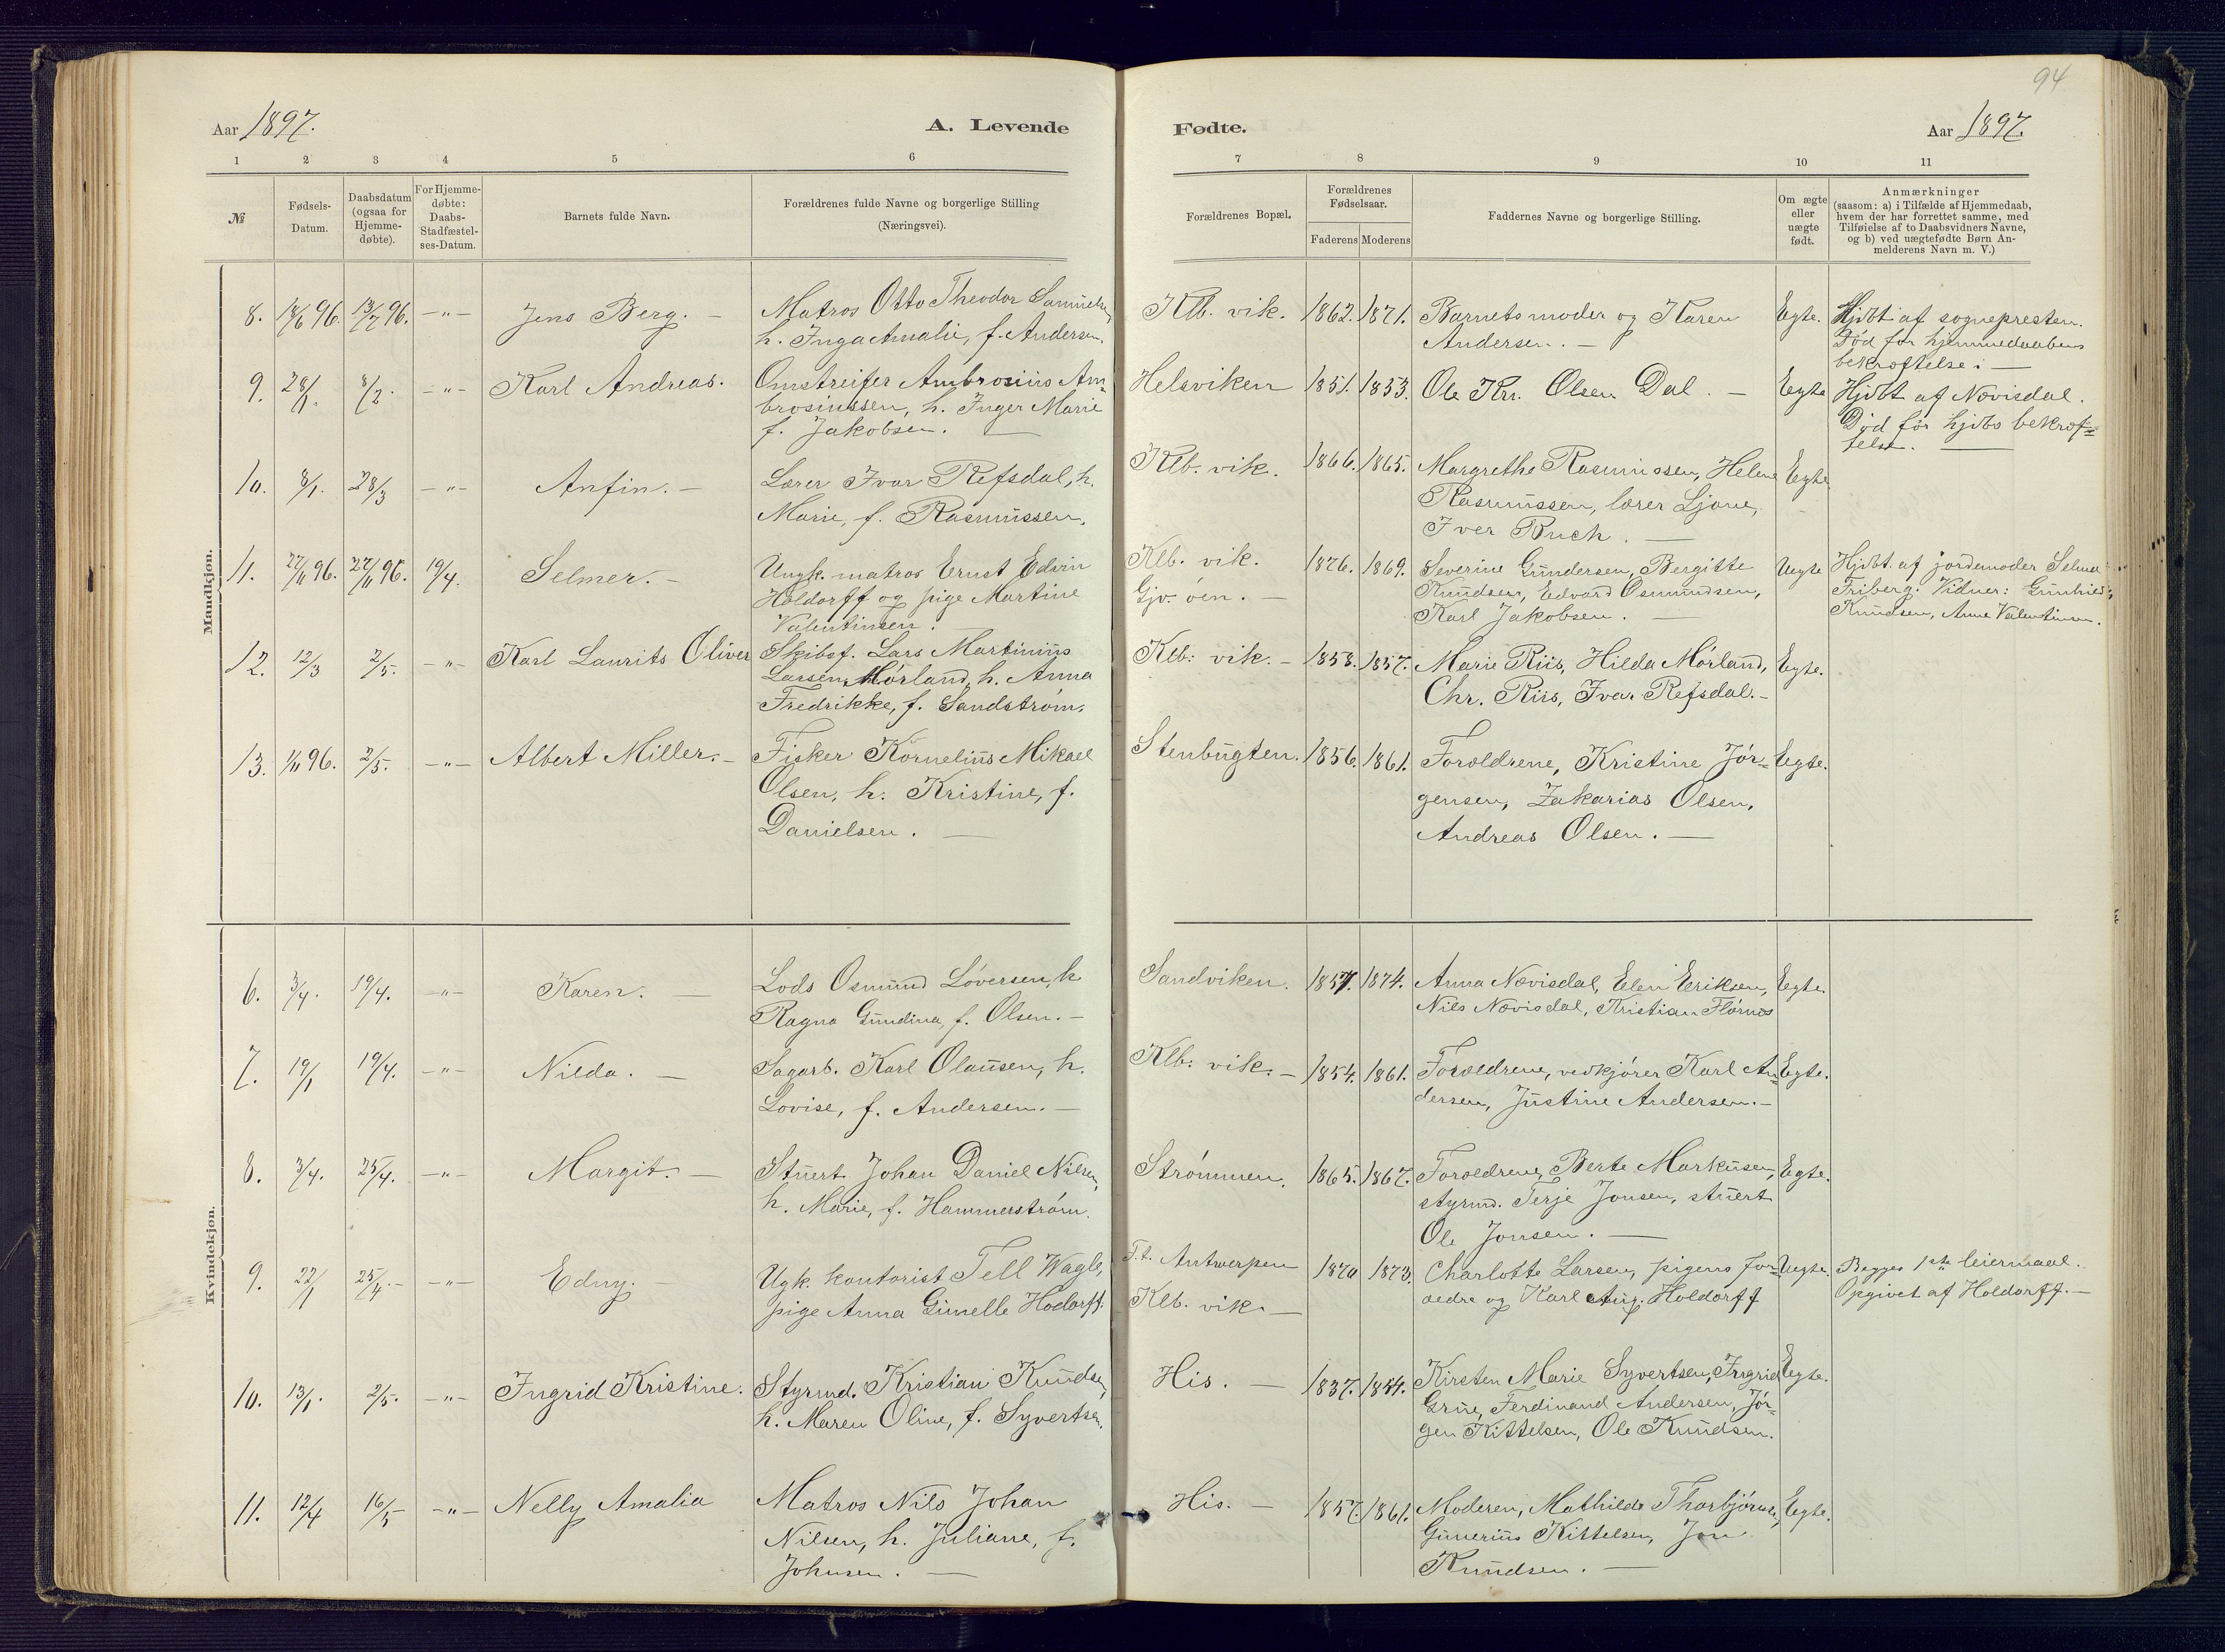 94
Aar 1897. A. Levende
Fødte. Aar 1897.
1 2 3 4 5 6
7 8 9 10 11
№
Fødsels-
Datum.
Daabsdatum
(ogsaa for
Hjemme-
døbte).
For Hjemme-
døbte:
Daabs-
Stadfæstel-
ses-Datum.
Barnets fulde Navn.
Forældrenes fulde Navne og borgerlige Stilling
(Næringsvei).
Forældrenes Bopæl.
Forældrenes
Fødselsaar.
Faderens Moderens
Faddernes Navne og borgerlige Stilling.
Om ægte
eller
uægte
født.
Anmærkninger
(saasom: a) i Tilfælde af Hjemmedaab,
hvem der har forrettet samme, med
Tilføielse af to Daabsvidners Navne,
og b) ved uægtefødte Børn An-
melderens Navn m. V.)
Mandkjøn.
8. 18/6 96. 13/7 96. -"- Jens Berg. -
Matros Otto Theodor Samuelsen,
h. Inga Amalie, f. Andersen.
Klb. vik. 1862. 1871.
Barnets moder og Karen
Andersen. -
Egte.
Hjdbt af sognepresten.
Død før hjemmedaabens
bekræftelse. -
9. 28/1. 8/2. -"- Karl Andreas.
Omstreifer Ambrosius Am-
brosiussen, h. Inger Marie
f. Jakobsen. -
Helsviken 1851. 1853. Ole Kr. Olsen Dal. - Egte
Hjdbt af Nævisdal.
Død før hjdbs bekræf=
telse. -
10. 8/1. 28/3 -"- Anfin. -
Lærer Ivar Refsdal, h.
Marie, f. Rasmussen.
Klb. vik. 1866. 1865.
Margrethe Rasmussen, Helene
Rasmussen, lærer Ljone,
Iver Buch. -
Egte.
11. 27/11 96. 27/11 96. 19/4. Selmer. -
Ungk. matros Ernst Edvin
Holdorff og pige Martine
Valentinsen.
Klb. vik.
Gjv. øen. -
1876. 1869.
Severine Gundersen, Bergitte
Knudsen, Edvard Osmundsen,
Karl Jakobsen. -
Uegte
Hjdbt. af jordemoder Selma
Friberg. Vidner: Gunhild
Knudsen, Anne Valentinsen.
12. 12/3 2/5. -"- Karl Laurits Oliver
Skibsf. Lars Martinius
Larsen Mørland, h. Anna
Fredrikke, f. Sandstrøm.
Klb. vik. - 1858. 1857.
Marie Riis, Hilda Mørland,
Chr. Riis, Ivar Refsdal. -
Egte.
13. 1/11 96. 2/5. -"- Albert Miller. -
Fisker Kornelius Mikael
Olsen, h. Kristine, f.
Danielsen. -
Stenbugten. 1856. 1861.
Forældrene, Kristine Jør=
gensen, Zakarias Olsen,
Andreas Olsen. -
Egte.
Kvindekjøn.
6. 3/4. 19/4. -"- Karen. -
Lods Osmund Løversen, h
Ragna Gundina, f. Olsen. -
Sandviken. 1857. 1874.
Anna Nævisdal, Elen Eriksen,
Nils Nævisdal, Kristian Flørnes
Egte.
7. 19/1 19/4. -"- Nilda. -
Sagarb. Karl Olaussen, h.
Lovise, f. Andersen. -
Klb. vik. - 1854. 1861.
Forældrene, vedkjører Karl An-
dersen, Justine Andersen. -
Egte.
8. 3/4. 25/4. -"- Margit. -
Stuert Johan Daniel Nilsen,
h. Marie, f. Hammerstrøm.
Strømmen. 1865. 1867.
Forældrene, Berte Markusen,
styrmd. Terje Jonsen, stuert
Ole Jonsen. -
Egte.
9. 22/1 25/4. - -"- Edny. -
Ugk. kontorist Tell Wagle,
pige Anna Gimelle Hodorff.
F.t. Antwerpen
Klb. vik. -
1870 1873.
Charlotte Larsen, pigens for-
ældre og Karl Aug. Holdorff
Uegte.
Begges 1ste leiermaal.
Opgivet af Holdorff. -
10. 13/1. 2/5. -"- Ingrid Kristine.
Styrmd. Kristian Knudsen,
h. Maren Oline, f. Syvertsen.
His. - 1837. 1854.
Kirsten Marie Syvertsen, Ingrid
Grue, Ferdinand Andersen, Jør-
gen Kittelsen, Ole Knudsen.
Egte.
11. 12/4 16/5 -"- Nelly Amalia
Matros Nils Johan
Nilsen, h. Juliane, f.
Johnsen. -
His. - 1857. 1861.
Moderen, Mathilde Thorbjørnsen,
Gunerius Kittelsen, Jon
Knudsen. -
Egte.